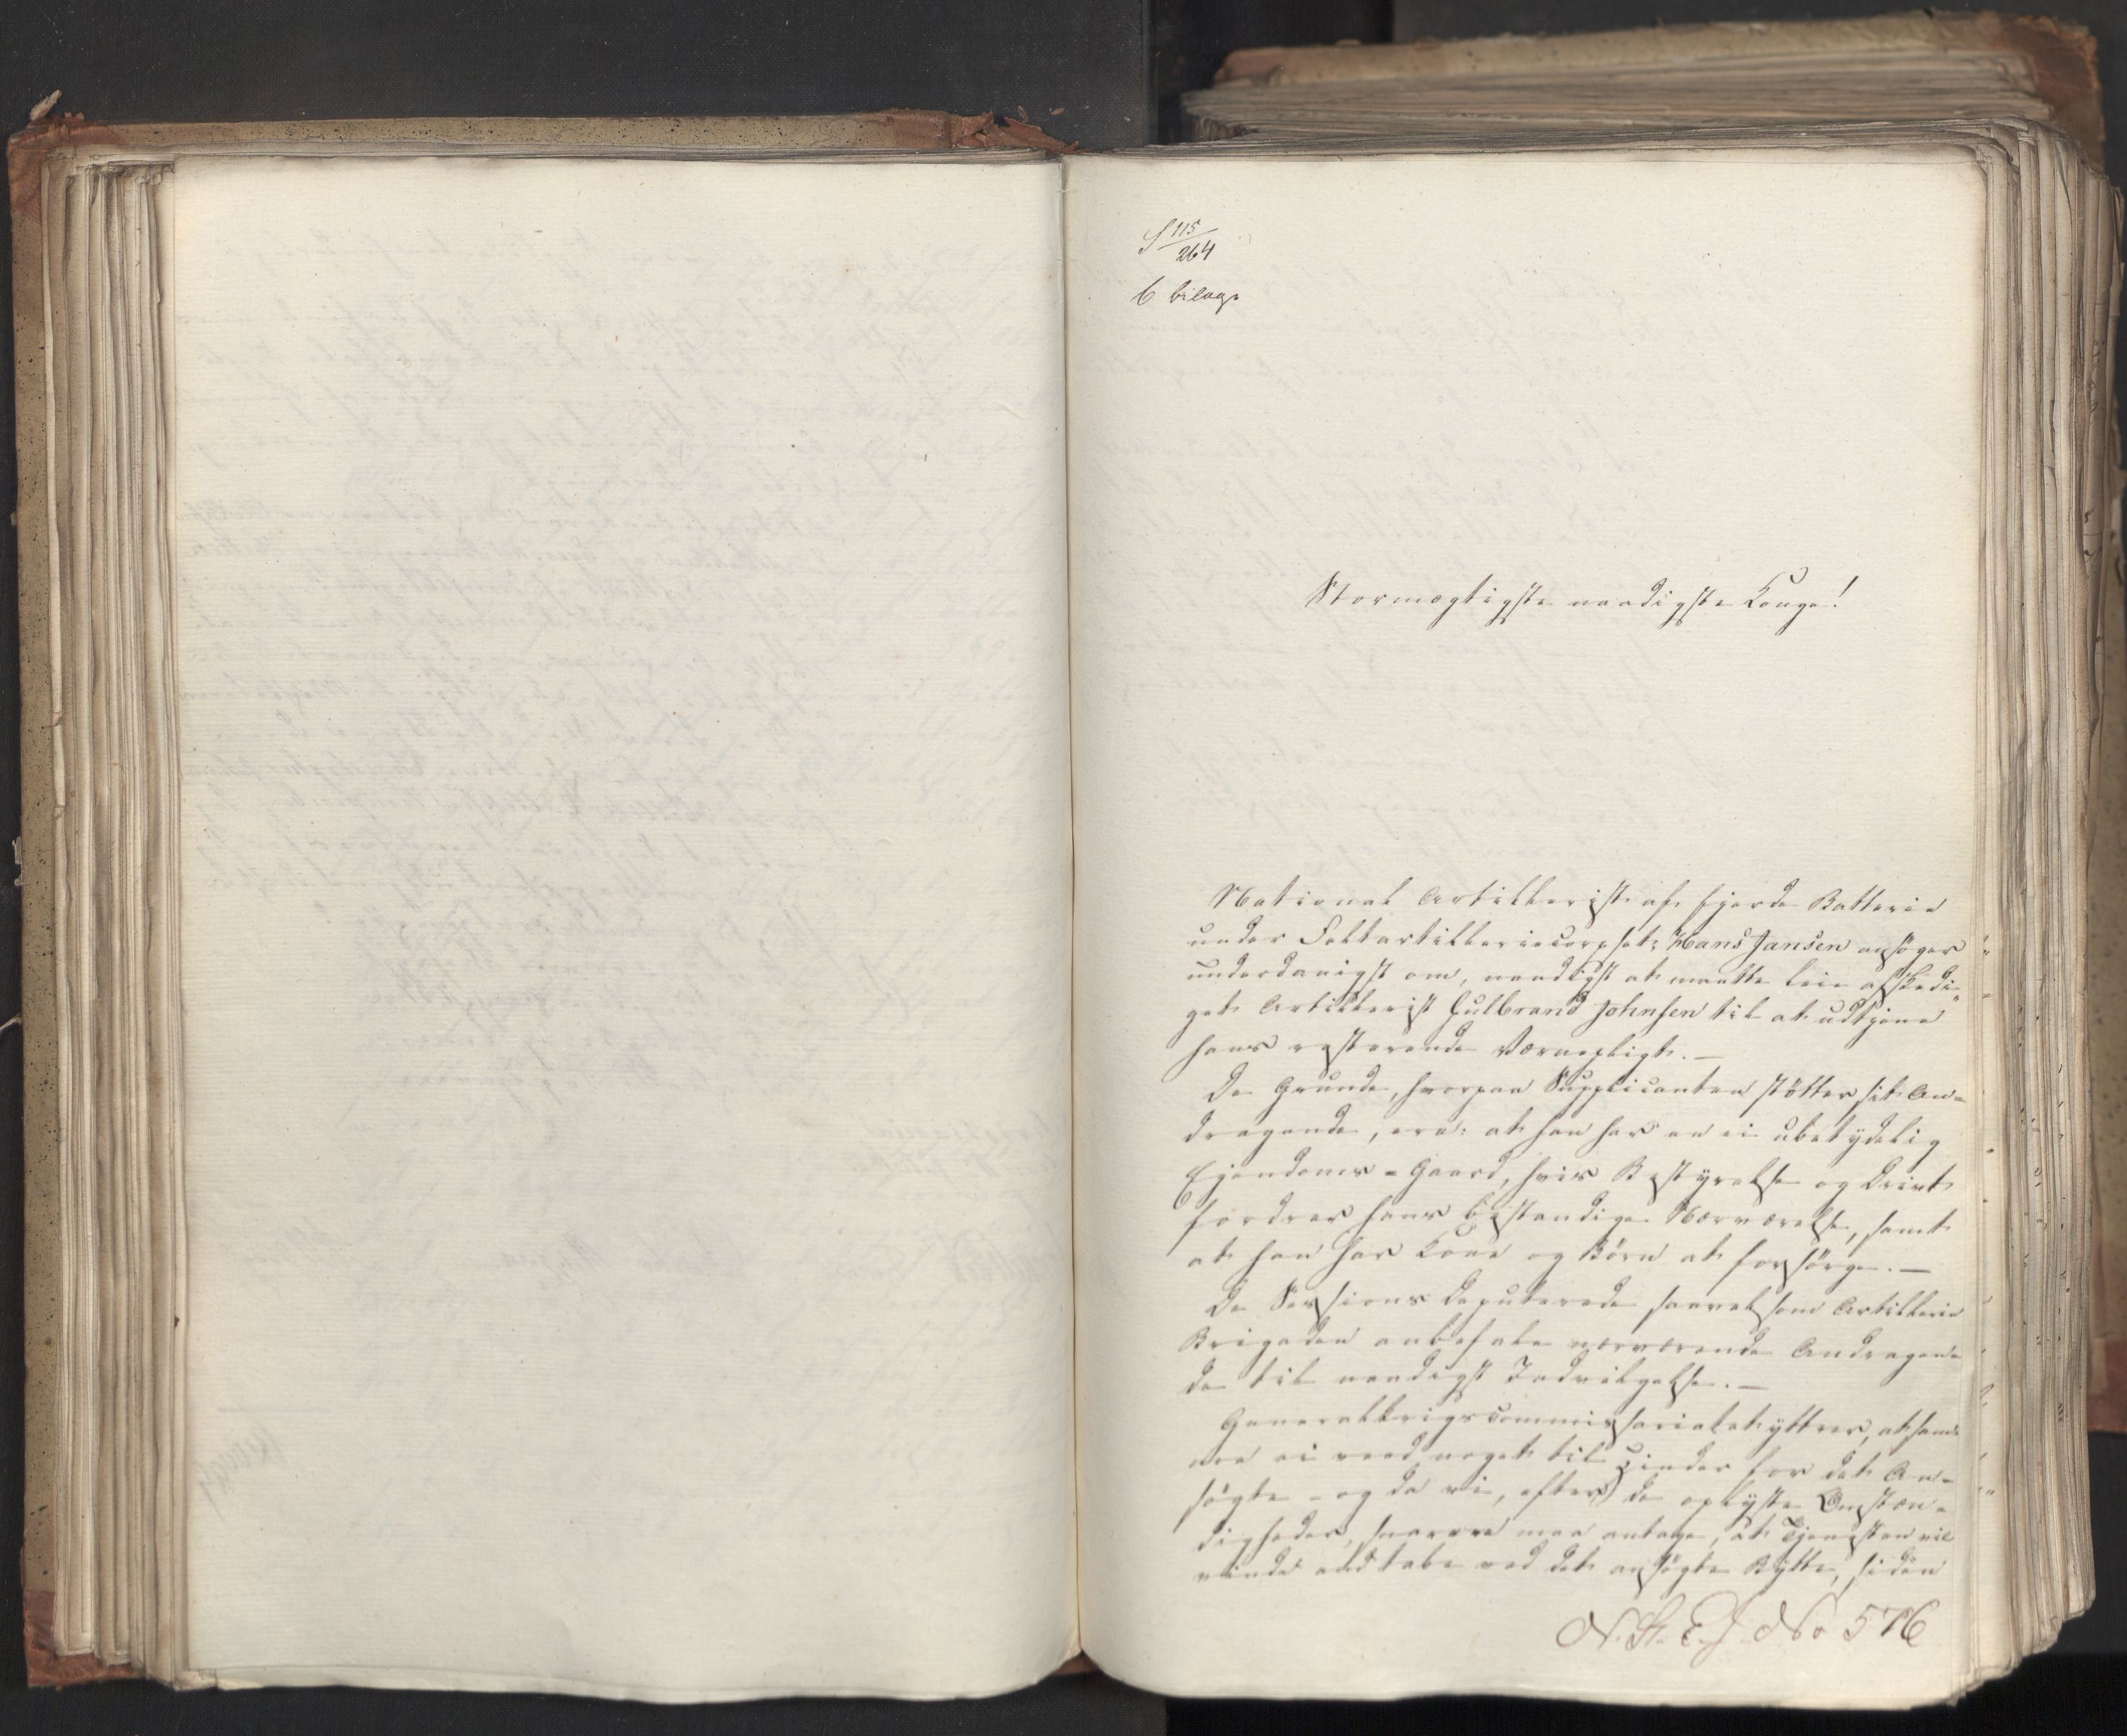 S 115/264
6 bilage
Stormægtigste naadigste Konge!
National Artillerist af fjerde Batterie
under Feltartilleriecorpset: Hans Jansen ansöger
underdanigst om, naadigst at maatte leie afskedi-
get Artillerist Gulbrand Johnsen til at udtjene
hans resterende Værnepligt. —
De Grunde, hvorpaa Supplicanten stötter sit An-
dragende, ere: at han har en ei ubetydelig
Ejendoms-Gaard, hvis Bestyrelse og Drivt
fordrer hans bestandige Nærværelse, samt
at han har Kone og Börn at forsörge. —
De Sessions Deputerede saavelsom Artillerie
Brigaden anbefale nærværende Andragen-
de til naadigst Indvilgelse. —
Generalkrigscommissariatet yttrer, at sam-
me ei veed noget til Hinder for det An-
søgte - og da vi, efter de oplyste Omstæn-
digheder, snarere maa antage, at Tjenesten vil
vinde end tabe ved det ansögte Bytte, siden
N. St. E. J. No 576